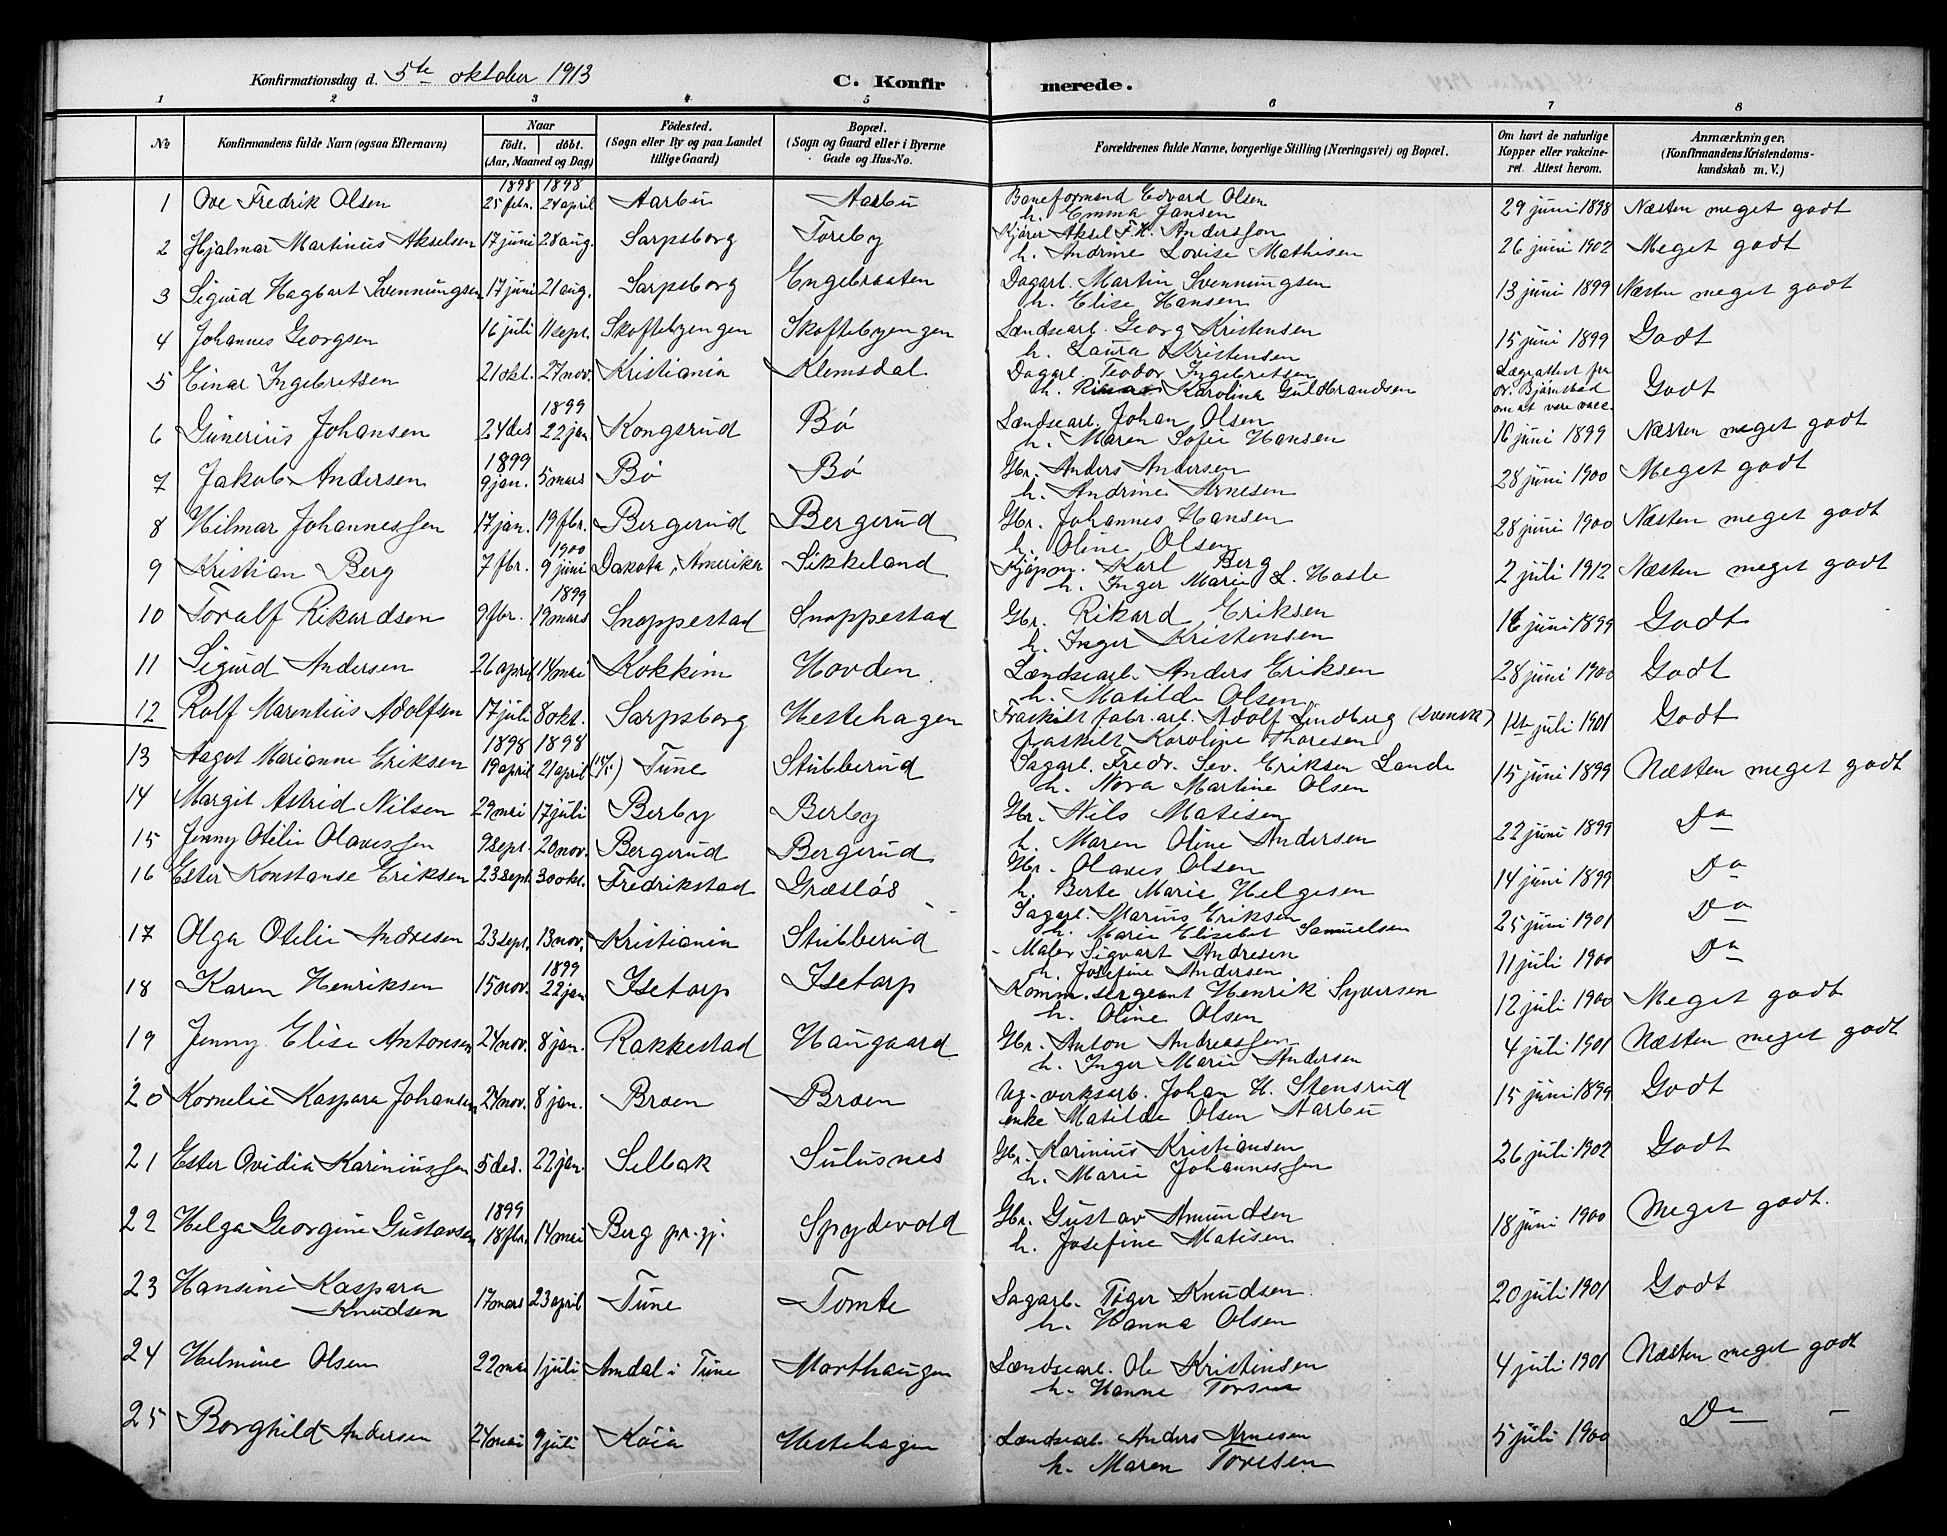 Konfirmationsdag d. 5te oktober 1913 C. Konfirmerede.
1 2 3 4 5 6 7 8
№ Konfirmandens fulde Navn (ogsaa Efternavn) Naar født. døbt. (Aar, Maaned og Dag) Fødested. (Sogn eller By og paa Landet tillige Gaard) Bopæl. (Sogn og Gaard eller i Byerne Gade og Hus-No. Forældrenes fulde Navne, borgerlige Stilling (Næringsvei) og Bopæl. Om havt de naturlige Kopper eller vakcineret. Attest herom. Anmærkninger, (Konfirmandens Kristendomskundskab m. V.)
1 Ove Fredrik Olsen 1898 25 febr. 1898 24 april Aarbu Aarbu Baneformand Edvard Olsen 29 juni 1898 Næsten meget godt
h. Emma Jansen
2 Hjalmar Martinus Akselsen 17 juni 28 aug. Sarpsborg Toreby Kjører Aksel F.H. Anderssen 26 juni 1902 Meget godt
h. Andrine Lovise Mathisen
3 Sigurd Hagbart Svenningsen 17 juni 21 aug. Sarpsborg Engebraaten Dagarb. Martin Svenningsen 13 juni 1899 Næsten meget godt
h. Elise Hansen
4 Johannes Georgsen 16 juli 11 sept. Skoftebyengen Skoftebyengen Lændsearb. Georg Kristensen 15 juni 1899 Godt
h. Laura Kristensen
5 Einar Ingebretsen 21 okt. 27 nov. Kristiania Klemsdal Dagarb. Teodor Ingebretsen Lægeattest fra dr. Bjørnstad om at være vacc. Godt
h. Karolina Guldbrandsen
6 Gunerius Johansen 24 des 1899 22 jan. Kongsrud Bø Lændsearb. Johan Olsen 16 juni 1899 Næsten meget godt
h. Maren Sofie Hansen
7 Jakob Andersen 1899 9 jan. 5 mars Bø Bø Gbr. Anders Andersen 28 juni 1900 Meget godt
h. Andrine Arnesen
8 Hilmar Johannessen 17 jan. 19 fbr. Bergerud Bergerud Gbr. Johannes Hansen 28 juni 1900 Næsten meget godt
h. Oline Olsen
9 Kristian Berg 7 fbr. 1900 9 juni Dakota, Amerika Sikkeland Kjøpm. Karl Berg 2 juli 1912 Næsten meget godt
h. Inger Marie L. Hasle
10 Toralf Rikardsen 9 fbr. 1899 19 mars Snoppestad Snoppestad Gbr. Rikard Eriksen 16 juni 1899 Godt
h. Inger Kristensen
11 Sigurd Andersen 26 april 14 mai Kokkim Hovden Lændsearb. Anders Eriksen 28 juni 1900 Godt
h. Matilde Olsen
12 Rolf Marentius Adolfsen 17 juli 8 okt. Sarpsborg Hestehagen Fraskilt fabr. arb. Adolf Lindberg (svensk) 1ste juli 1901 Godt
fraskilt Karoline Thoresen
13 Aagot Marianne Eriksen 1898 19 april 1898 21 april Tune Stubberud Sagarb. Fredr. Sev. Eriksen Lande 15 juni 1899 Næsten meget godt
h. Nora Martine Olsen
14 Margit Astrid Nilsen 29 mai 17 juli Berby Berby Gbr. Nils Matisen 22 juni 1899 Do
h. Maren Oline Andersen
15 Jenny Otilie Olavessen 9 sept. 20 nov. Bergerud Bergerud Gbr. Olaves Olsen 14 juni 1899 Do
h. Berte Marie Helgesen
16 Ester Konstanse Eriksen 23 sept 30 okt. Fredrikstad Græsløs Sagarb. Marius Eriksen 25 juni 1901 Do
h. Marie Elisebet Samuelsen
17 Olga Otelie Andresen 23 sept. 13 nov. Kristiania Stubberud Maler Sigvart Andresen 11 juli 1900 Do
h. Josefine Andersen
18 Karen Henriksen 15 nov. 1899 22 jan Isetorp Isetorp Komm. sergeant Henrik Syversen 12 juli 1900 Meget godt
h. Oline Olsen
19 Jenny Elise Antonsen 24 nov. 8 jan. Rakkestad Haugaard Gbr. Anton Andreassen 4 juli 1901 Næsten meget godt
h. Inger Marie Andersen
20 Kornelie Kaspara Johansen 24 nov. 8 jan. Braen Braen Ug. verksarb. Johan H. Stensrud 15 juni 1899 Godt
enke Matilde Olsen Aarbu
21 Ester Ovidia Kariniussen 5 des. 22 jan. Selbak Sulusnes Gbr. Karinius Kristiansen 26 juli 1902 Godt
h. Marie Johannessen
22 Helga Georgine Gustavsen 1899 18 fbr. 14 mai Berg pr.gj. Spydevold Gbr. Gustav Amundsen 18 juni 1900 Meget godt.
h. Josefine Matisen
23 Hansine Kaspara Knudsen 17 mars 23 april Tune Tomte Sagarb. Tøger Knudsen 20 juli 1901 Godt
h. Hanna Olsen
24 Helmine Olsen 22 mai 1 juli Amdal i Tune Morthaugen Lændsearb. Ole Kristensen 4 juli 1901 Næsten meget godt
h. Hanne
25 Borghild Andersen 24 mai 9 juli Kaia Hestehagen Lændsearb. Anders Arnesen 5 juli 1900 Do
h. Maren Toresen